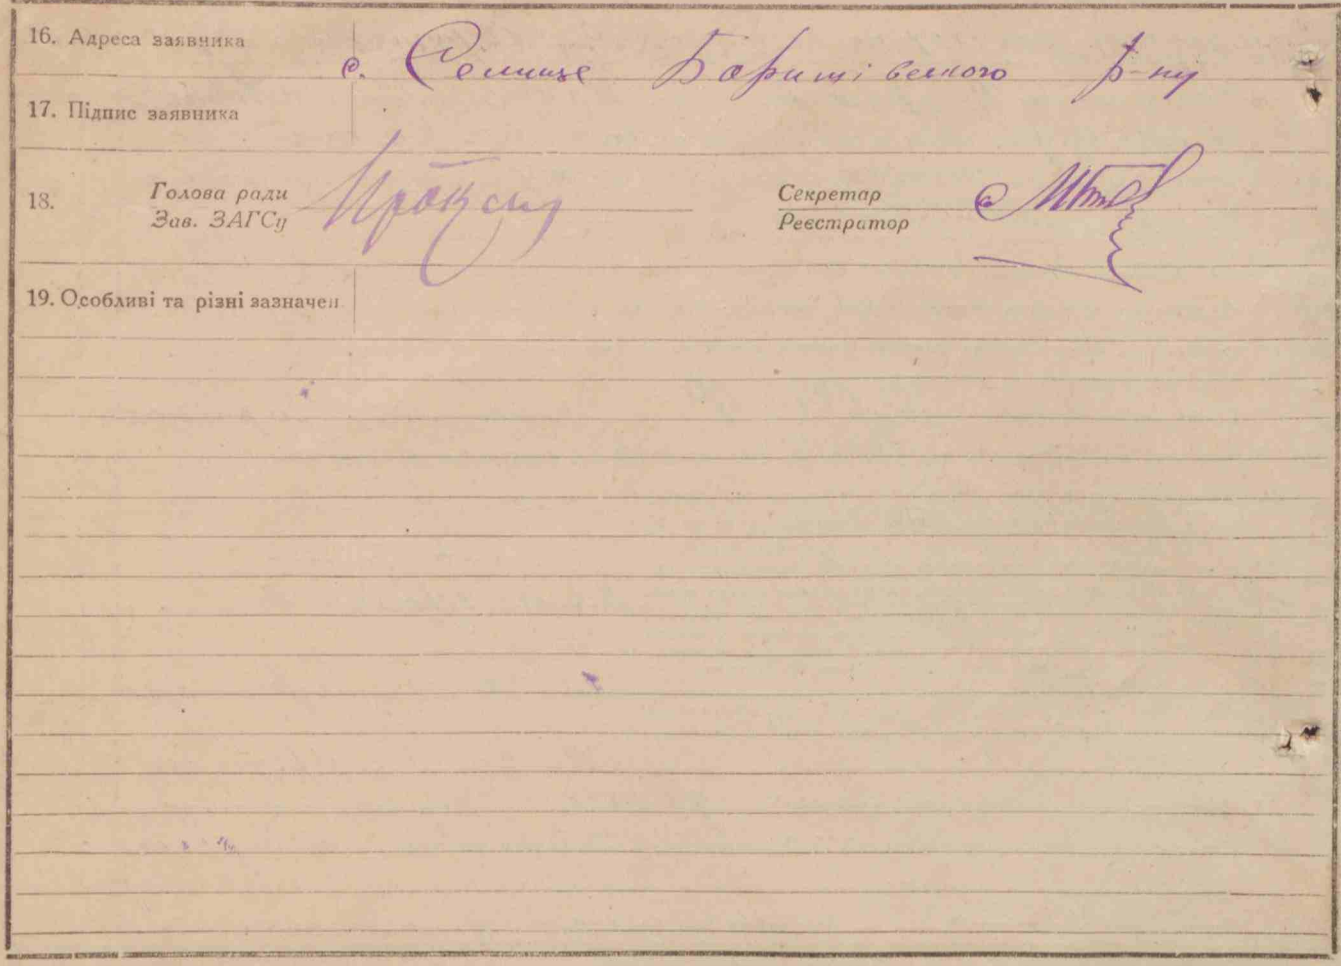 16. Адреса заявника
с. Селище Баришівського р-ну
17. Підпис заявника
18. Голова ради
Зав. ЗАГСу
Секретар
Реєстратор
19. Особливі та різні зазначен.